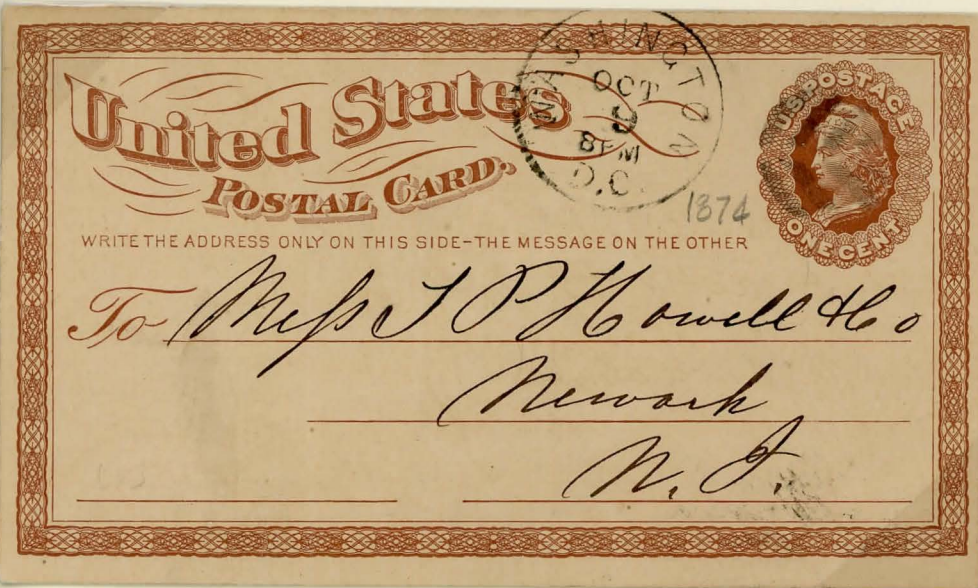 United States
POSTAL CARD.
WASHINGTON
OCT
8 PM
D.C.
1874
U.S. POSTAGE
ONE CENT
WRITE THE ADDRESS ONLY ON THIS SIDE–THE MESSAGE ON THE OTHER
To Mess T P Howell & Co
Newark
N. J.